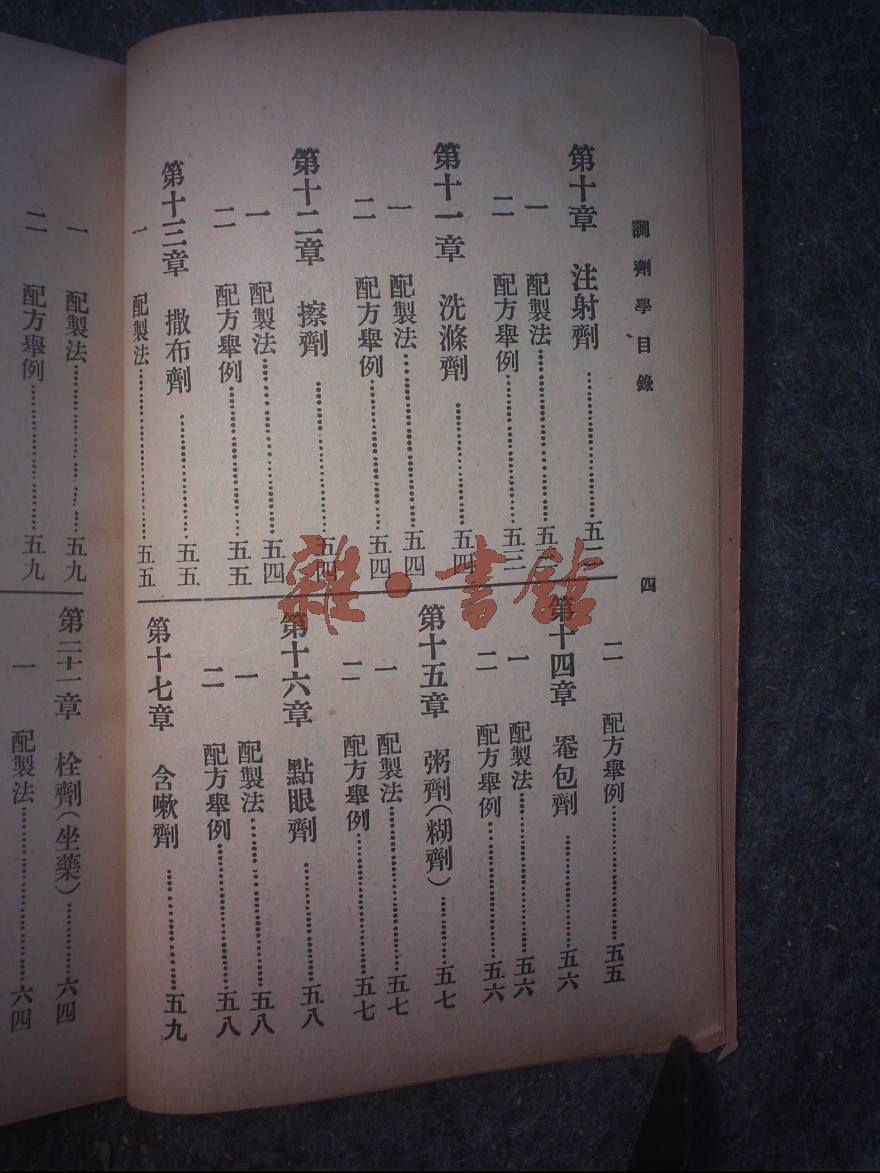 調劑學目錄
四
第十章 注射劑
一 配製法
二 配方舉例 五三
第十一章 洗滌劑 五四
一 配製法 五四
二 配方舉例 五四
第十二章 擦劑 五四
一 配製法 五四
二 配方舉例 五五
第十三章 撒布劑 五五
一 配製法 五五
二 配方舉例 五五
第十四章 罨包劑 五六
一 配製法 五六
二 配方舉例 五六
第十五章 粥劑(糊劑) 五七
一 配製法 五七
二 配方舉例 五七
第十六章 點眼劑 五八
一 配製法 五八
二 配方舉例 五八
第十七章 含嗽劑 五九
一 配製法 五九
二 配方舉例 五九
第二十一章 栓劑(坐藥) 六四
一 配製法 六四
雜·書館